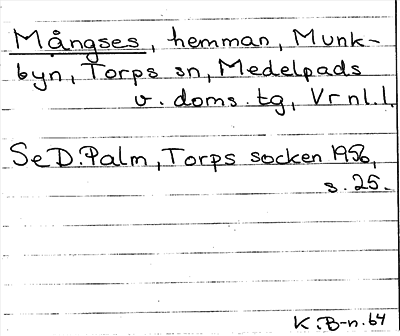 Mångses, hemman, Munk-
byn, Torps sn, Medelpads
v. doms. tg, Vrnl. l.
Se D. Palm, Torps socken 1956,
s. 25.
K. B-n. 64